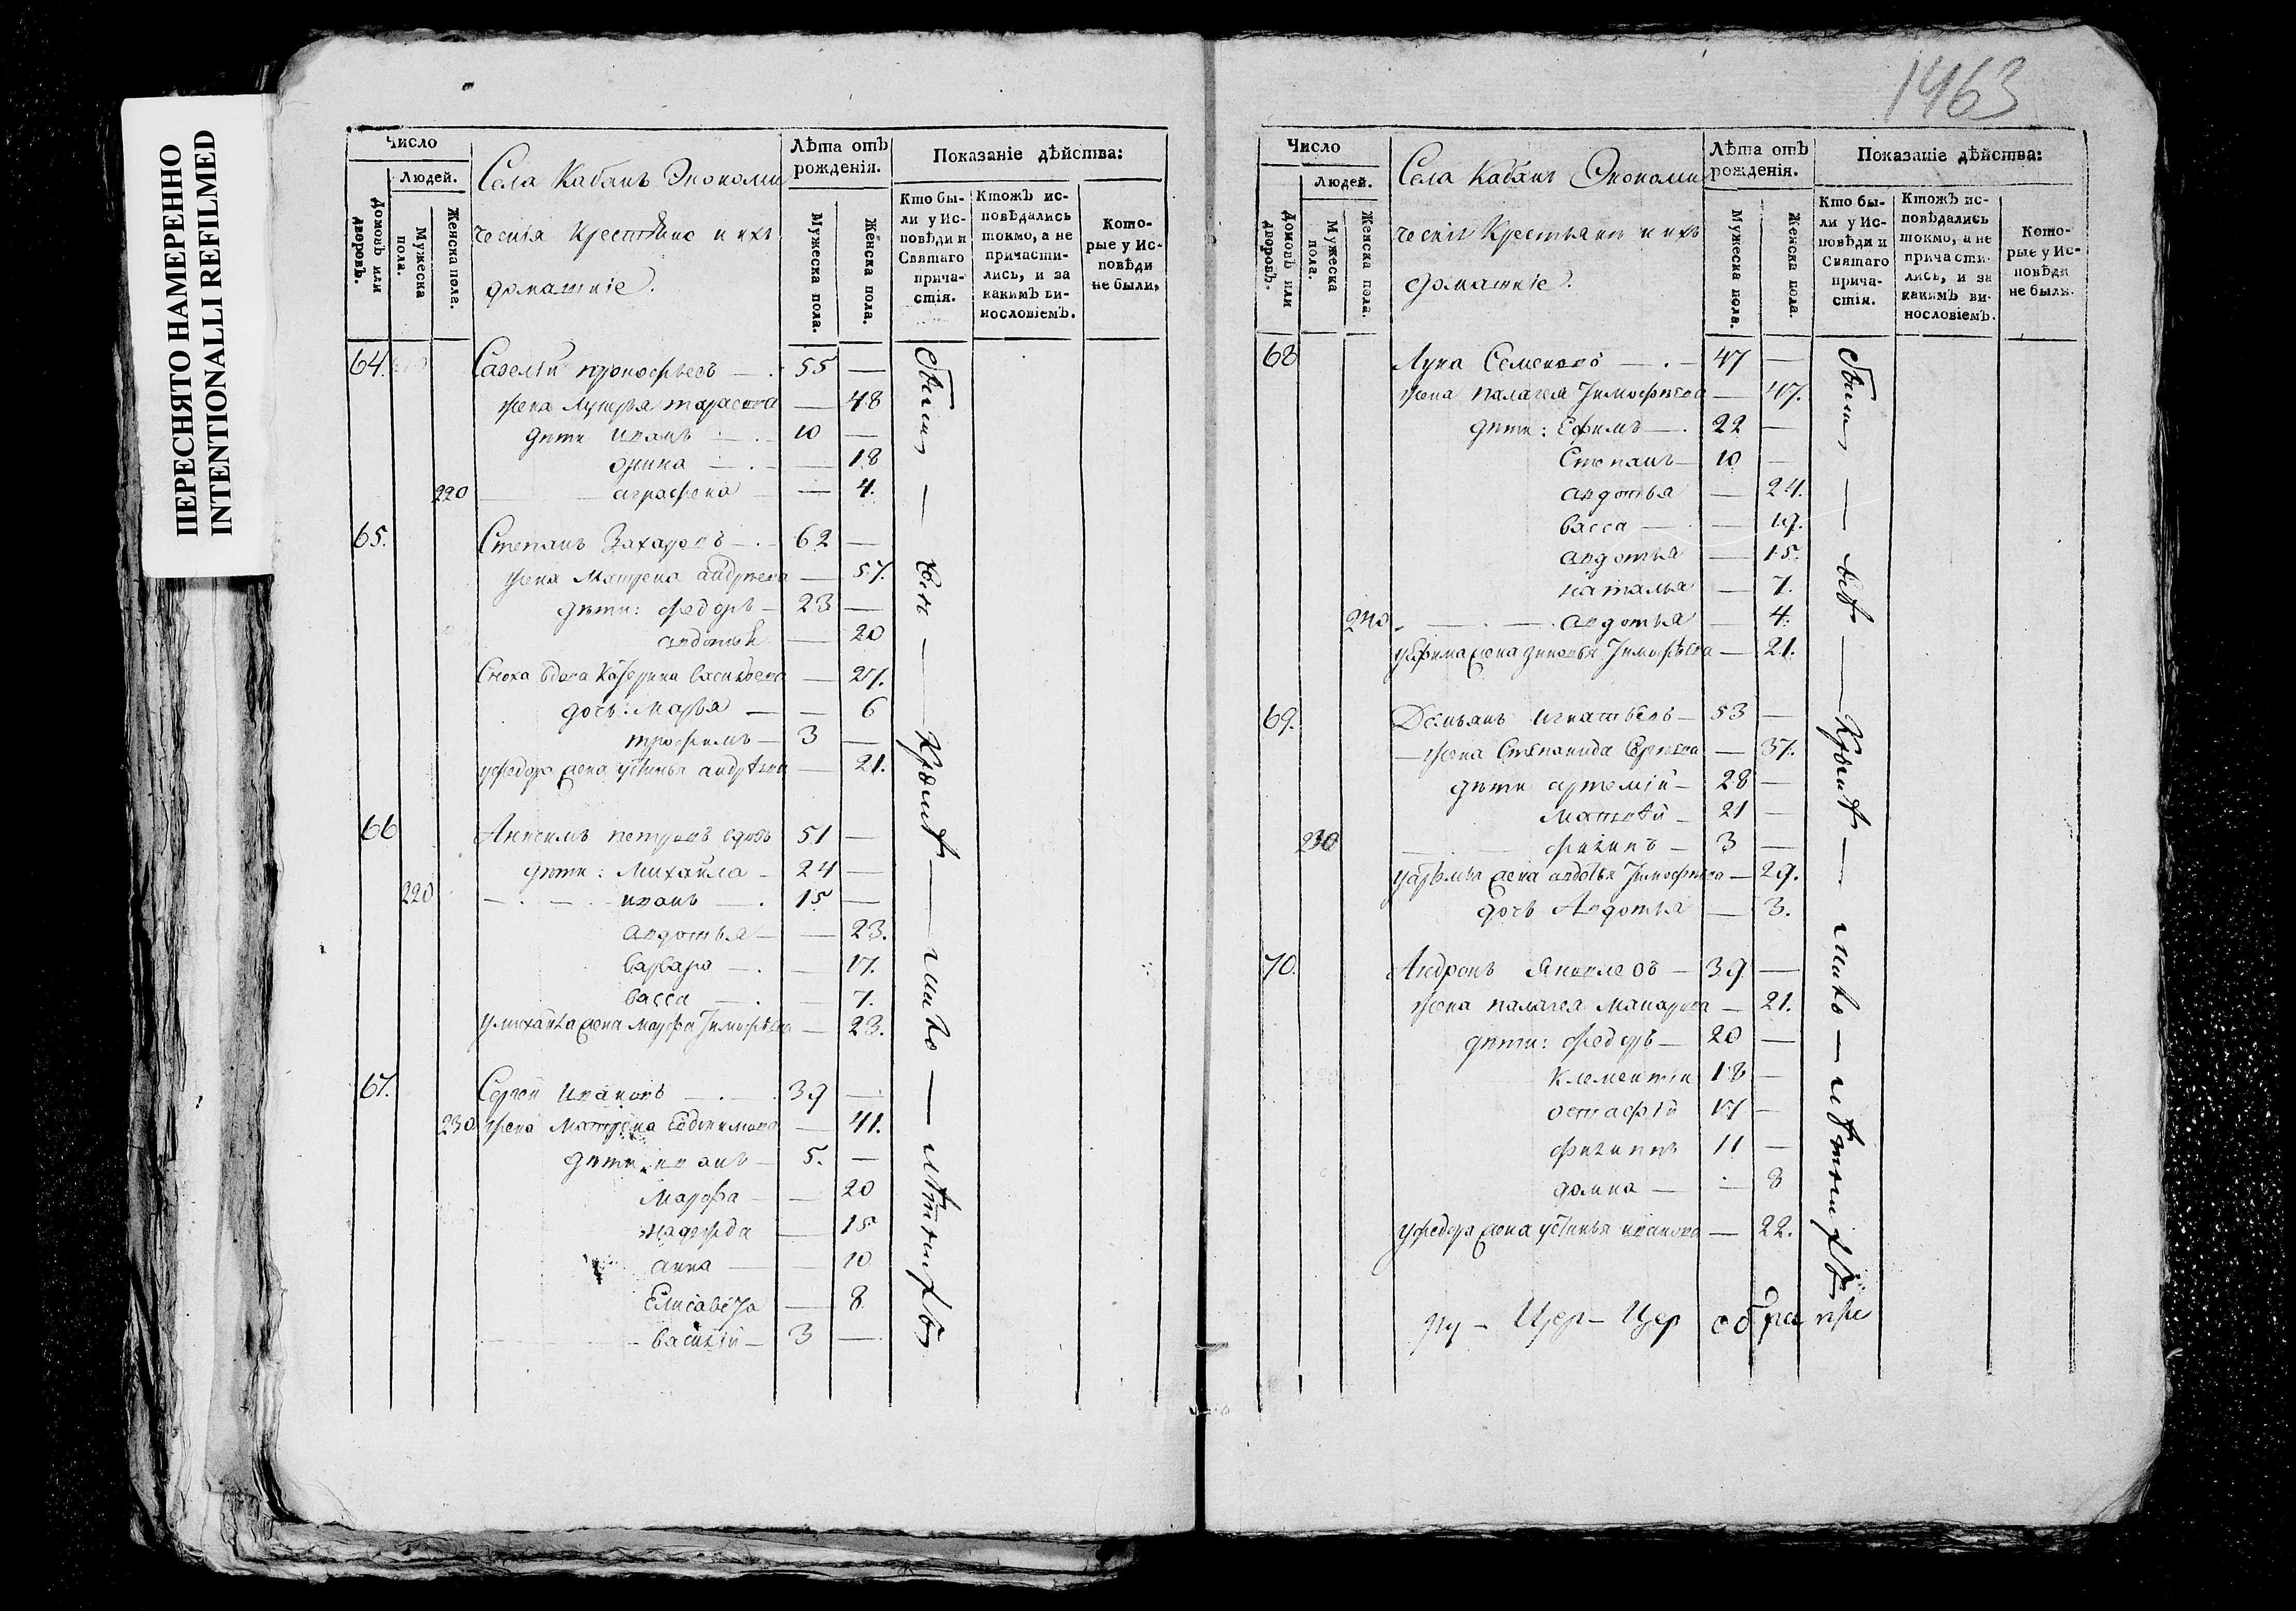 ПЕРЕСНЯТО НАМЕРЕННО
INTENTIONALLI REFILMED
Число
Людей.
Домовъ или дворовъ.
Мужеска пола.
Женска пола.
Села Кабанъ Экономи
ческія Крестьяне и ихъ
домашніе.
Лѣта отъ рожденія.
Мужеска пола.
Женска пола.
Показаніе дѣйства:
Кто были у Исповѣди и Святаго причастія.
Ктожъ исповѣдались токмо, а не причастились, и за какимъ винословіемъ.
Которые у Исповѣди не были,
64. Савелій прокофьевъ — 55 —
жена Лукерья тарасова — 48
дѣти иванъ — 10 —
орина — 18
220 аграфена — 4.
65. Степанъ Захаровъ — 62 —
жена Матрена андрѣева — 57.
дѣти: федоръ — 23 —
авдотья — 20
Сноха вдова Катерина Васильева — 27.
дочь: Марья — 6
трофимъ — 3 —
уфедора жена устинья андрѣева — 21.
66 Анисимъ петровъ вдовъ 51 —
дѣти: Михайла — 24 —
220 иванъ — 15 —
авдотья — 23.
варвара — 17.
васса — 7.
умихайла жена марфа Тимофѣева — 23.
67. Сергѣй ивановъ — 39 —
230 жена Матрена Евдокимова — 41.
дѣти иванъ — 5. —
Марфа — 20
надежда — 15
анна — 10
Елисавета — 8
василій — 3 —
были — всѣ — Кромѣ — мало — лѣтнихъ
1463
Число
Людей.
Домовъ или дворовъ.
Мужеска пола.
Женска пола.
Села Кабанъ Экономи
ческіе Крестьяне и ихъ
домашніе.
Лѣта отъ рожденія.
Мужеска пола.
Женска пола.
Показаніе дѣйства:
Кто были у Исповѣди и Святаго причастія.
Ктожъ исповѣдались токмо, а не причастились, и за какимъ винословіемъ.
Которые у Исповѣди не были.
68 Лука Семеновъ — 47 —
жена палагея Тимофѣева — 47.
дѣти: Ефимъ — 22 —
Степанъ — 10 —
авдотья — 24.
васса — 19.
авдотья — 15.
наталья — 7.
240 авдотья — 4.
уефима жена зиновья Тимофѣева — 21.
69. Демьянъ игнатьевъ — 53 —
жена Степанида — 37.
дѣти артемій — 28 —
Матвѣй — 21 —
230 филипъ — 3 —
уартемья жена авдотья Тимофѣева — 29.
дочь Авдотья — 3.
70. Андронъ Яковлевъ — 39 —
жена палагея Макарова — 21.
дѣти: федоръ — 20 —
Клементій 18 —
остафій 17 —
филиппъ 11 —
домна — 8
уфедора жена устинья иванова — 22.
были — всѣ — Кромѣ — мало — лѣтнихъ